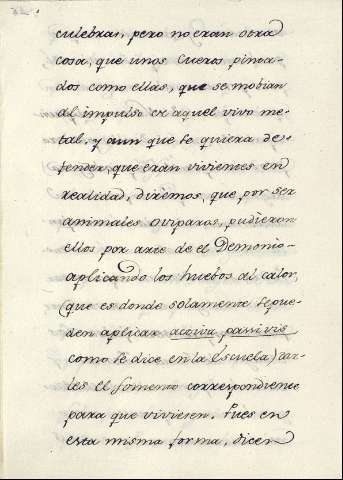 culebras, pero no eran otra
cosa, que unos Cueros pinta-
dos como ellas, que se mobian
al impulso de aquel vivo me-
tal, y aun que se quiera de-
fender, que eran vivientes en
realidad, diremos, que por ser
animales oviparos, pudieron
ellos por arte de el Demonio
aplicando los huebos al calor,
(que es donde solamente se pue-
den aplicar activa passivis
como se dice en la Escuela) dar-
les el fomento correspondiente
para que viviesen. Pues en
esta misma forma, dicen